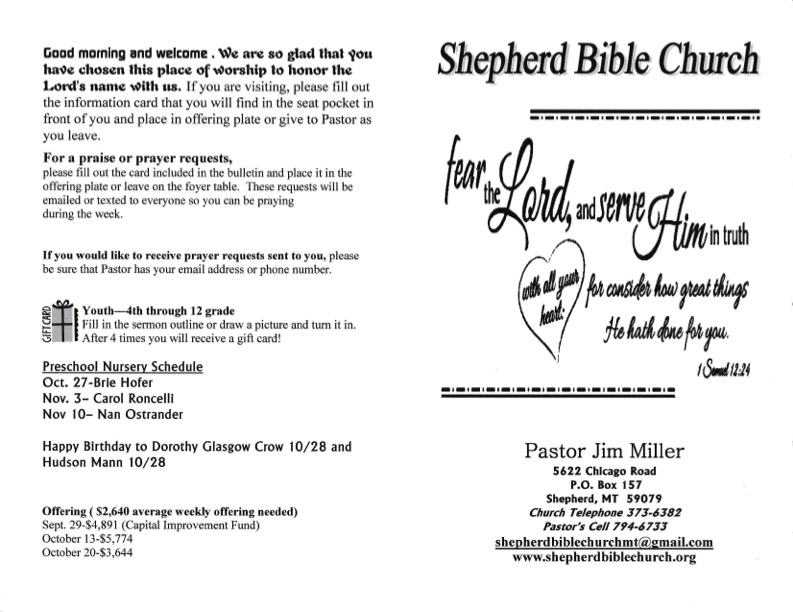 Good morning and welcome . We are so glad that you
have chosen this place of worship to honor the
Lord's name with us. If you are visiting, please fill out
the information card that you will find in the seat pocket in
front of you and place in offering plate or give to Pastor as
you leave.
For a praise or prayer requests,
please fill out the card included in the bulletin and place it in the
offering plate or leave on the foyer table.  These requests will be
emailed or texted to everyone so you can be praying
during the week.
If you would like to receive prayer requests sent to you, please
be sure that Pastor has your email address or phone number.
GIFT CARD
Youth—4th through 12 grade
Fill in the sermon outline or draw a picture and turn it in.
After 4 times you will receive a gift card!
Preschool Nursery Schedule
Oct. 27-Brie Hofer
Nov. 3– Carol Roncelli
Nov 10– Nan Ostrander
Happy Birthday to Dorothy Glasgow Crow 10/28 and
Hudson Mann 10/28
Offering ( $2,640 average weekly offering needed)
Sept. 29-$4,891 (Capital Improvement Fund)
October 13-$5,774
October 20-$3,644
Shepherd Bible Church
fear the Lord, and serve Him in truth
with all your heart:
for consider how great things
He hath done for you.
1 Samuel 12:24
Pastor Jim Miller
5622 Chicago Road
P.O. Box 157
Shepherd, MT  59079
Church Telephone 373-6382
Pastor's Cell 794-6733
shepherdbiblechurchmt@gmail.com
www.shepherdbiblechurch.org